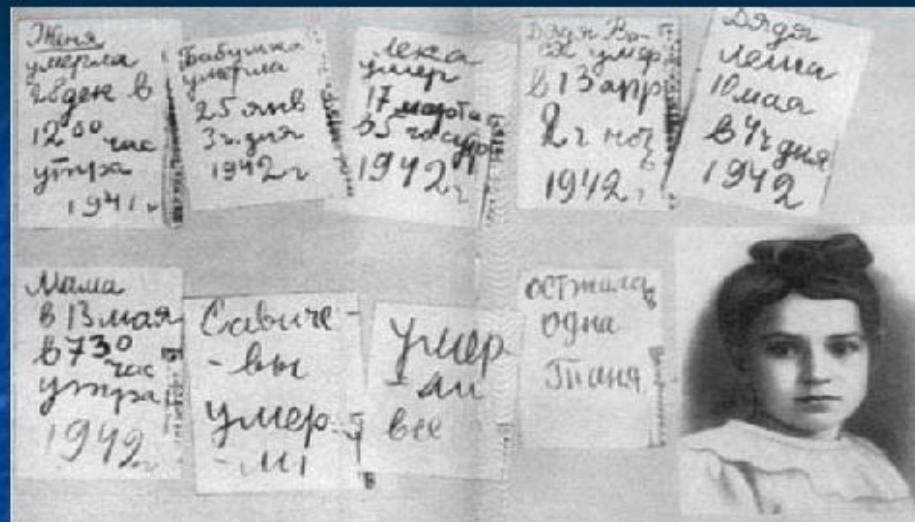 Женя
умерла
28 дек в
12⁰⁰ час
утра
1941 г
Бабушка
умерла
25 янв
3 ч. дня
1942 г
Лека
умер
17 марта
в 5 час утр
1942 г
Дядя Ва-
ся умер
в 13 апр
2 ч ночь
1942 г
Дядя
Леша
10 мая
в 4 ч дня
1942
Мама
в 13 мая
в 7³⁰
час
утра
1942 г
Савиче-
-вы
умер-
-ли
Умер
-ли
все
Осталась
одна
Таня